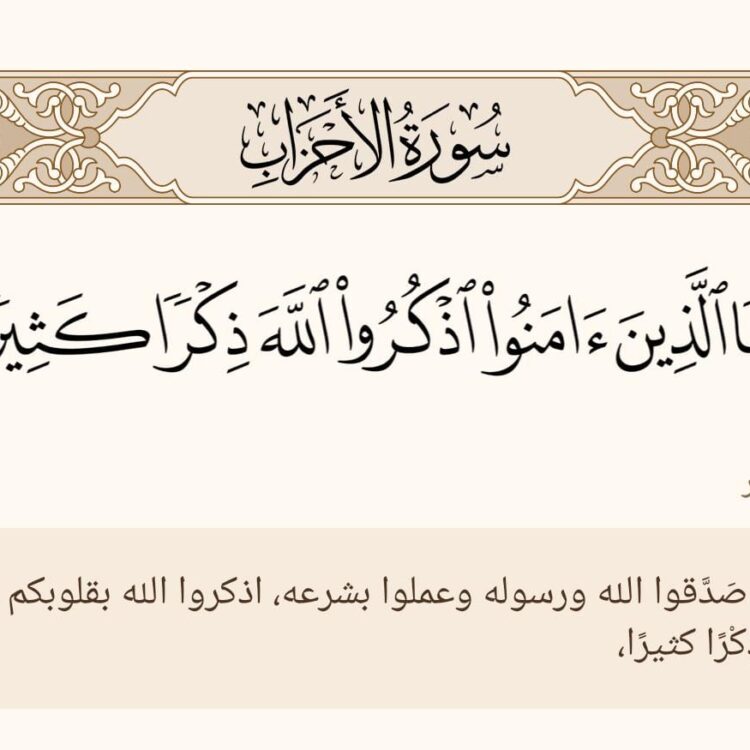 سُورَةُ الأَحْزَابِ
ٱلَّذِينَ ءَامَنُوا۟ ٱذْكُرُوا۟ ٱللَّهَ ذِكْرًا
صَدَّقوا الله ورسوله وعملوا بشرعه، اذكروا الله بقلوبكم
كثيرًا،